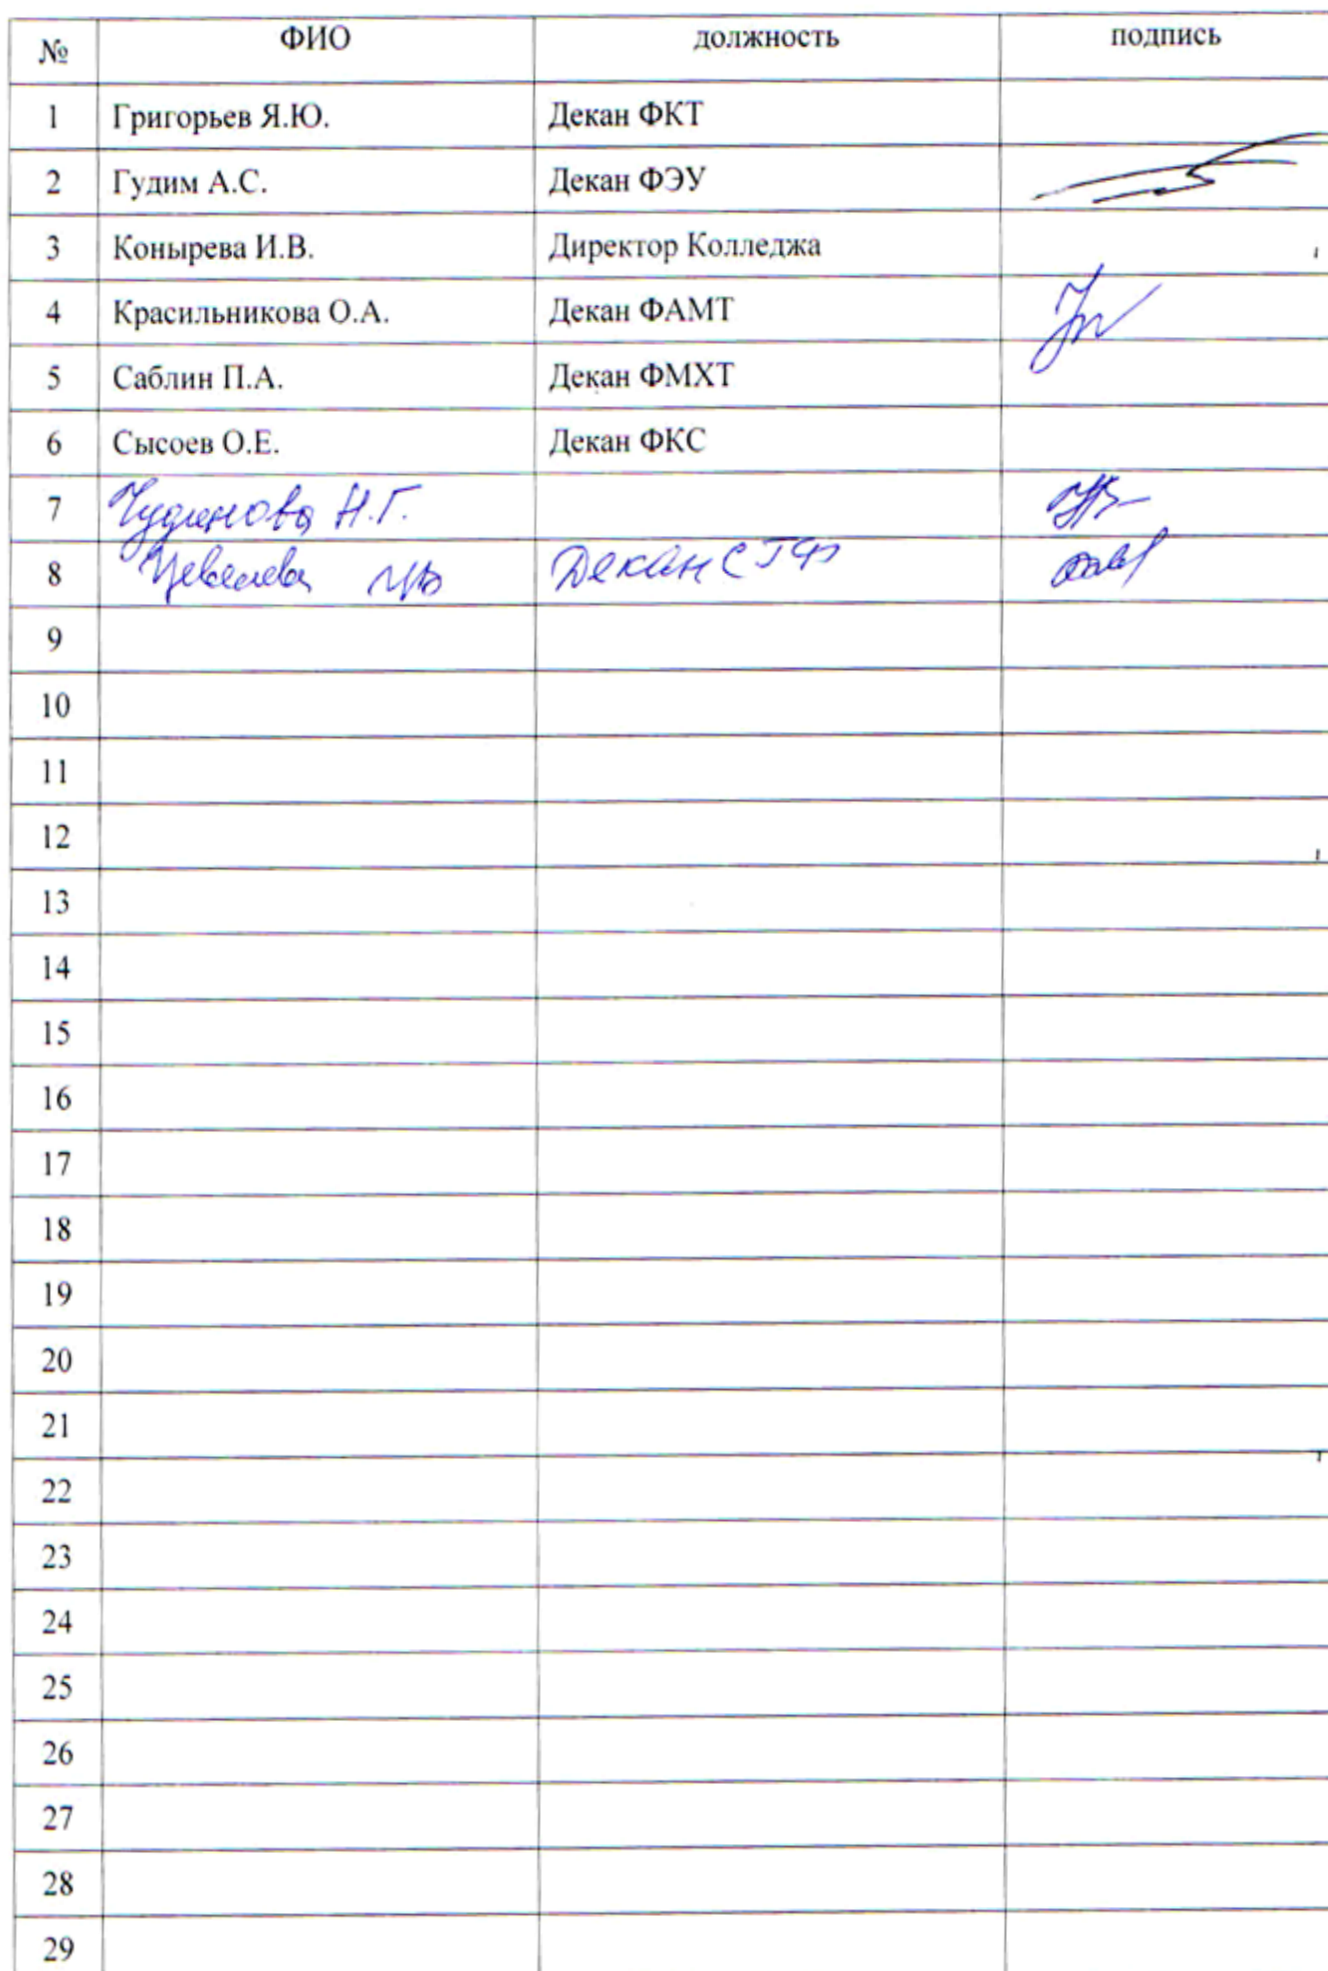 № ФИО должность подпись
1 Григорьев Я.Ю. Декан ФКТ
2 Гудим А.С. Декан ФЭУ
3 Конырева И.В. Директор Колледжа
4 Красильникова О.А. Декан ФАМТ
5 Саблин П.А. Декан ФМХТ
6 Сысоев О.Е. Декан ФКС
7 Чудинова Н.Г.
8 Цевелева Декан СГФ
9
10
11
12
13
14
15
16
17
18
19
20
21
22
23
24
25
26
27
28
29